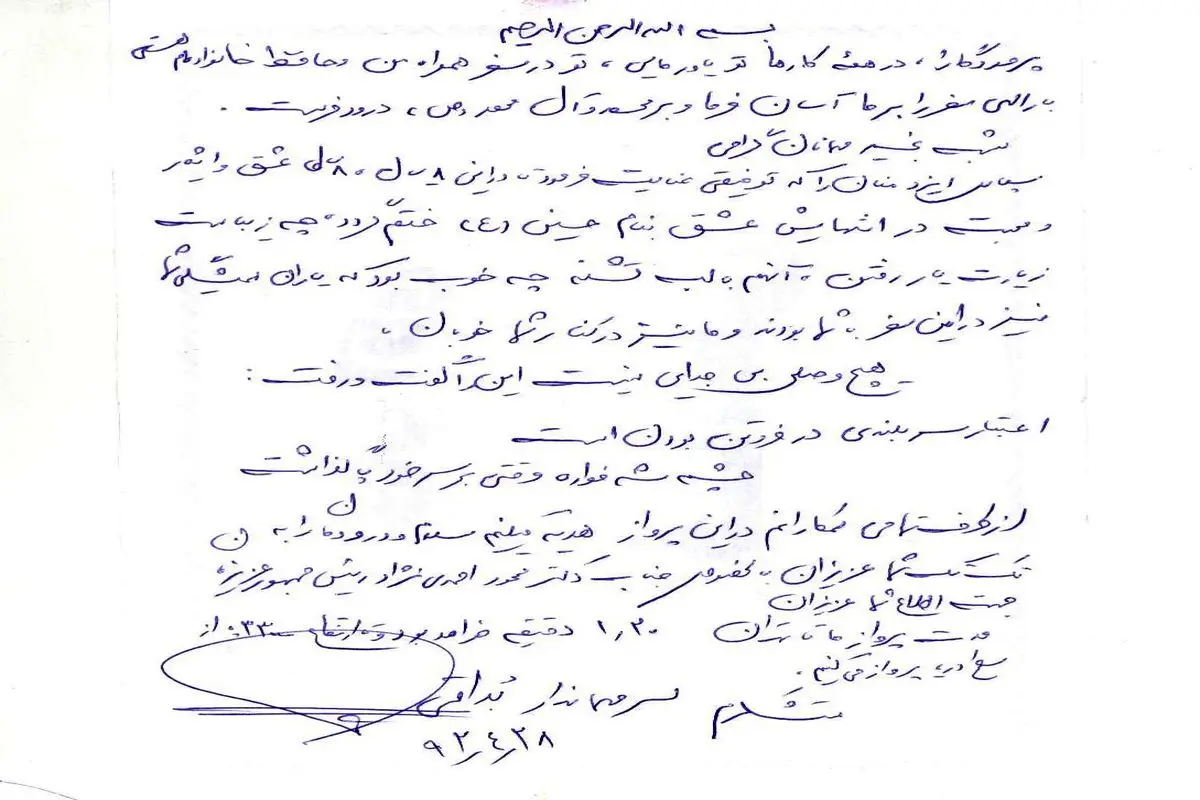 بسم الله الرحمن الرحیم
پروردگارا، در همهٔ کارها تو یاور مایی، تو در سفر همراه من و حافظ خانواده‌ام هستی
بارالهی سفر را بر ما آسان فرما و بر محمد و آل محمد (ص)، درود فرست.
شب بخیر مهمانان گرامی
سپاس ایزد منان را که توفیقی عنایت فرمود تا در این ۸ سال، ۸ سال عشق و ایثار
و محبت در انتهایش عشق بنام حسینی (ع) ختم گردد، چه زیباست
زیارت یار رفتن، آنهم با لب تشنه چه خوب بود که یاران همیشگی شما
نیز در این سفر با شما بودند و ما نیز در کنار شما خوبان،
هیچ وصلی بی جدایی نیست این را گفت و رفت:
اعتبار سربلندی در فروتن بودن است
چشمه شد فواره وقتی بر سر خود پا گذاشت
از طرف تمامی همکارانم در این پرواز هدیه میکنم سلام و درودمان را به
تک تک شما عزیزان بالخصوص جناب دکتر محمود احمدی نژاد رئیس جمهور عزیزمان
جهت اطلاع شما عزیزان
مدت پرواز ما تا تهران ۱٫۲۰ دقیقه خواهد بود و در ارتفاع ۳۳۰۰۰ از
سطح دریا پرواز می کنیم.
متشکرم سرمهماندار بُداقی
۹۲٫۴٫۲۸